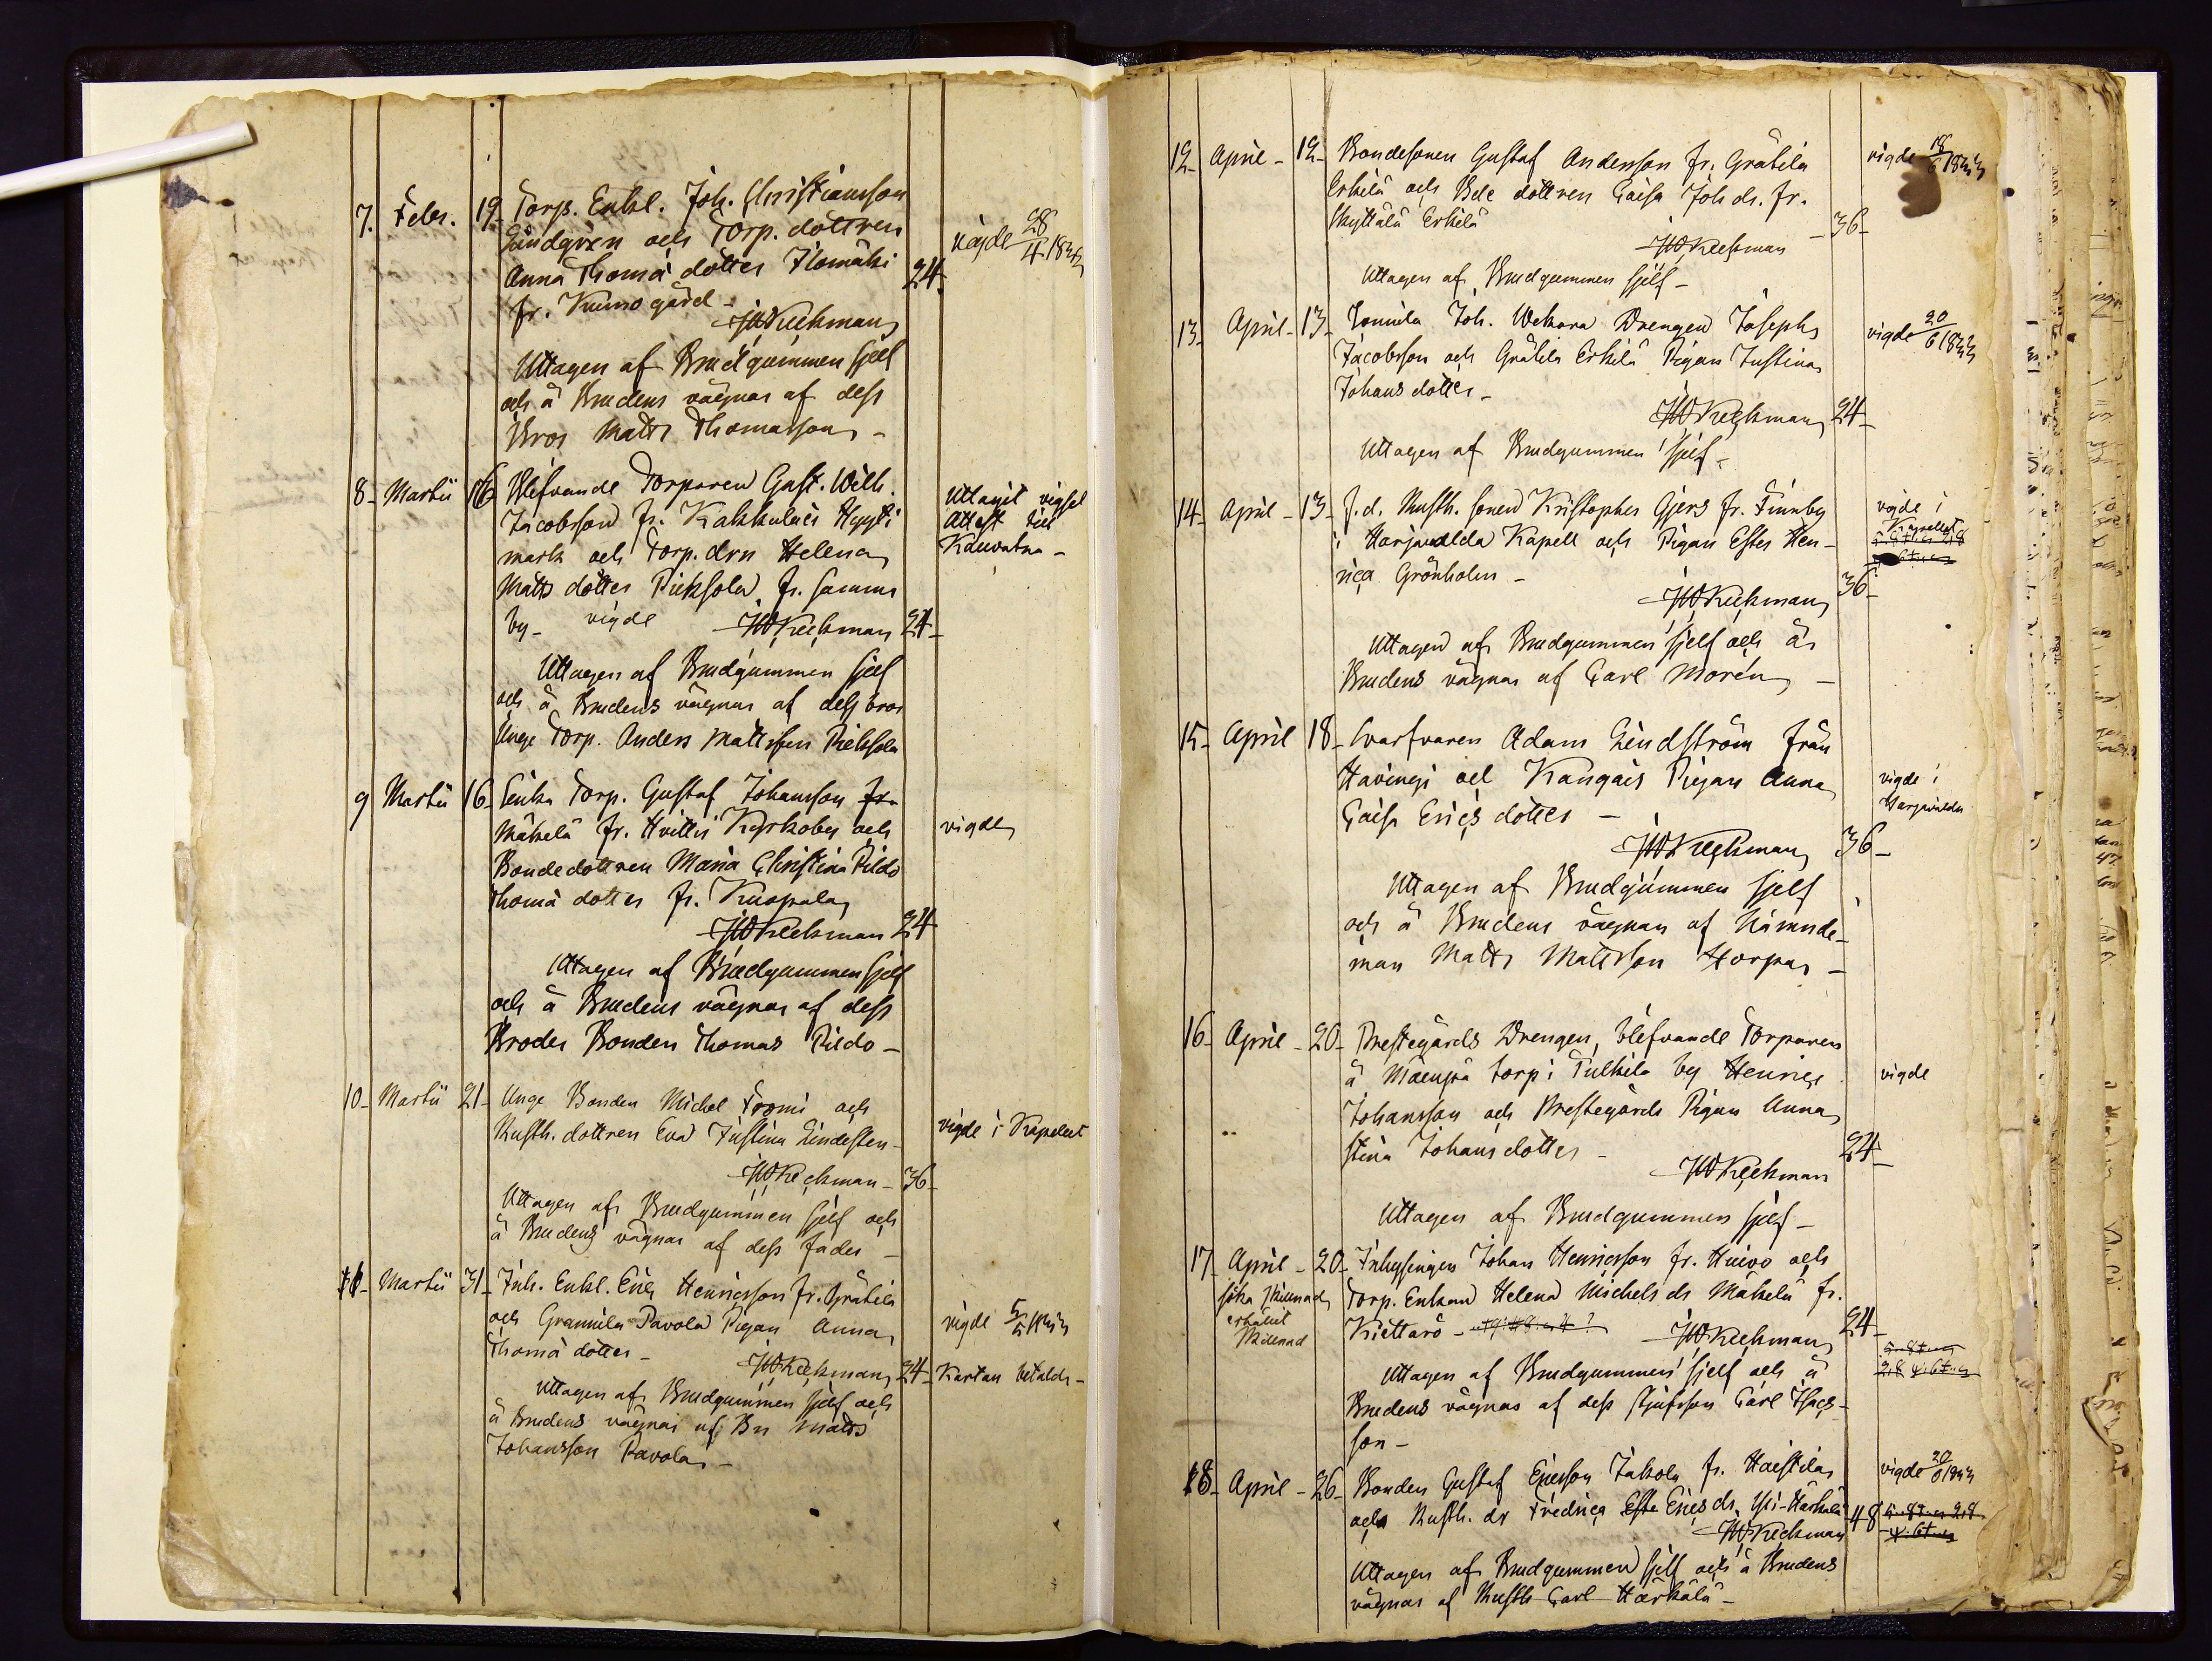 7. Febr. 19. Torp. Enkl. Joh. Christiansson
Lindqven och Torp. dottren
Anna Thomä dotter Ilomäki 24.
fr. Kuino gård -
JWKeckman
vigde 28/4 1833
Uttagen af Brudgummen sjelf
och å Brudens vägnar af dess
Bror Matts Thomasson -
8- Martii 16 Blifvande Torparen Gust. Wilh.
Jacobsson fr. Kakkulais Hyyti
mark och Torp. drn Helena
Matts dotter Pieksola fr. samma
by - vigde JWKeckman 24-
Uttagit vigsel
Attest till
Kauvatsa -
Uttagen af Brudgummen sjelf
och å Brudens vägnar af dess bror
Unge Torp. Anders Mattsson Pieksola
9 Martii 16 Enka Torp. Gustaf Johansson fr.
Mäkelä fr. Hvittis Kyrkoby och
Bondedottren Maria Christina Pildo
Thomä dotter fr. Kuopala
JWKeckman 24
vigde
Uttagen af Brudgummen sjelf
och å Brudens vägnar af dess
Broder Bonden Thomas Pildo -
10- Martii 21- Unge Bonden Michel Fromi och
Rusth. dottren Eva Justina Lindesten -
JWKeckman - 36-
vigde i Kapellet
Uttagen af Brudgummen sjelf och
å Brudens vägnar af dess fader -
11- Martii 31- Inh. Enkl. Eric Henricsson fr. Gräbila
och Grannila Pavola Pigan Anna
Thomä dotter -
JWKeckman 24-
vigde 5/5 1833
Kartan betalds -
Uttagen af Brudgummen sjelf och
å Brudens vägnar af Bn Matts
Johansson Pavola -
12- April - 12- Bondesonen Gustaf Andersson fr. Gräbila
Erkilä och Bde dottren Caisa Joh dr. fr.
Skyttälä Erkilä - 36-
JWKeckman
vigde 18/6 1833
Uttagen af Brudgummen sjelf -
13- April - 13- Sonnila Joh. Wekara Drengen Josephs
Jacobsson och Gräbila Erkilä Pigan Justina
Johans dotter -
JWKeckman 24-
vigde 20/6 1833
Uttagen af Brudgummen sjelf -
14- April - 13- f.d. Rusth. sonen Kristopher Gjers fr. Finnby
i Harjavalda Kapell och Pigan Ester Hen-
rica Grönholm - 36-
JWKeckman
vigde i
Kapellet
Uttagen af Brudgummen sjelf och å
Brudens vägnar af Carl Morén -
15- April 18- Svarfvaren Adam Lindström från
Havingi och Kangais Pigan Anna
Caisa Erics dotter -
JWKeckman 36-
vigde i
Harjavalda
Uttagen af Brudgummen sjelf
och å Brudens vägnar af Nämnde-
man Matts Mattsson Horpa -
16- April - 20- Prestegårds Drengen, blifvande Torparen
å Mäenpä torp i Tulkila by Henric
Johansson och Prestegårds Pigan Anna
Stina Johans dotter - 24-
JWKeckman
vigde
Uttagen af Brudgummen sjelf -
17- April - 20- Inhysingen Johan Henricsson fr. Huivo och
söka skillnad Torp. Enkan Helena Michels dr Mäkelä fr.
erhållit
Skillnad
Kiettarö - JWKeckman 24-
Uttagen af Brudgummen sjelf och å
Brudens vägnar af dess stjufson Carl Isacs-
son -
18- April - 26- Bonden Gustaf Ericsson Jakola fr. Haistila
och Rusth. dr Fredrica Erics dr. Yli-Härkälä 48
JWKeckman
vigde 20/6 1833
Uttagen af Brudgummen sjelf och å Brudens
vägnar af Rusth Carl Härkälä -